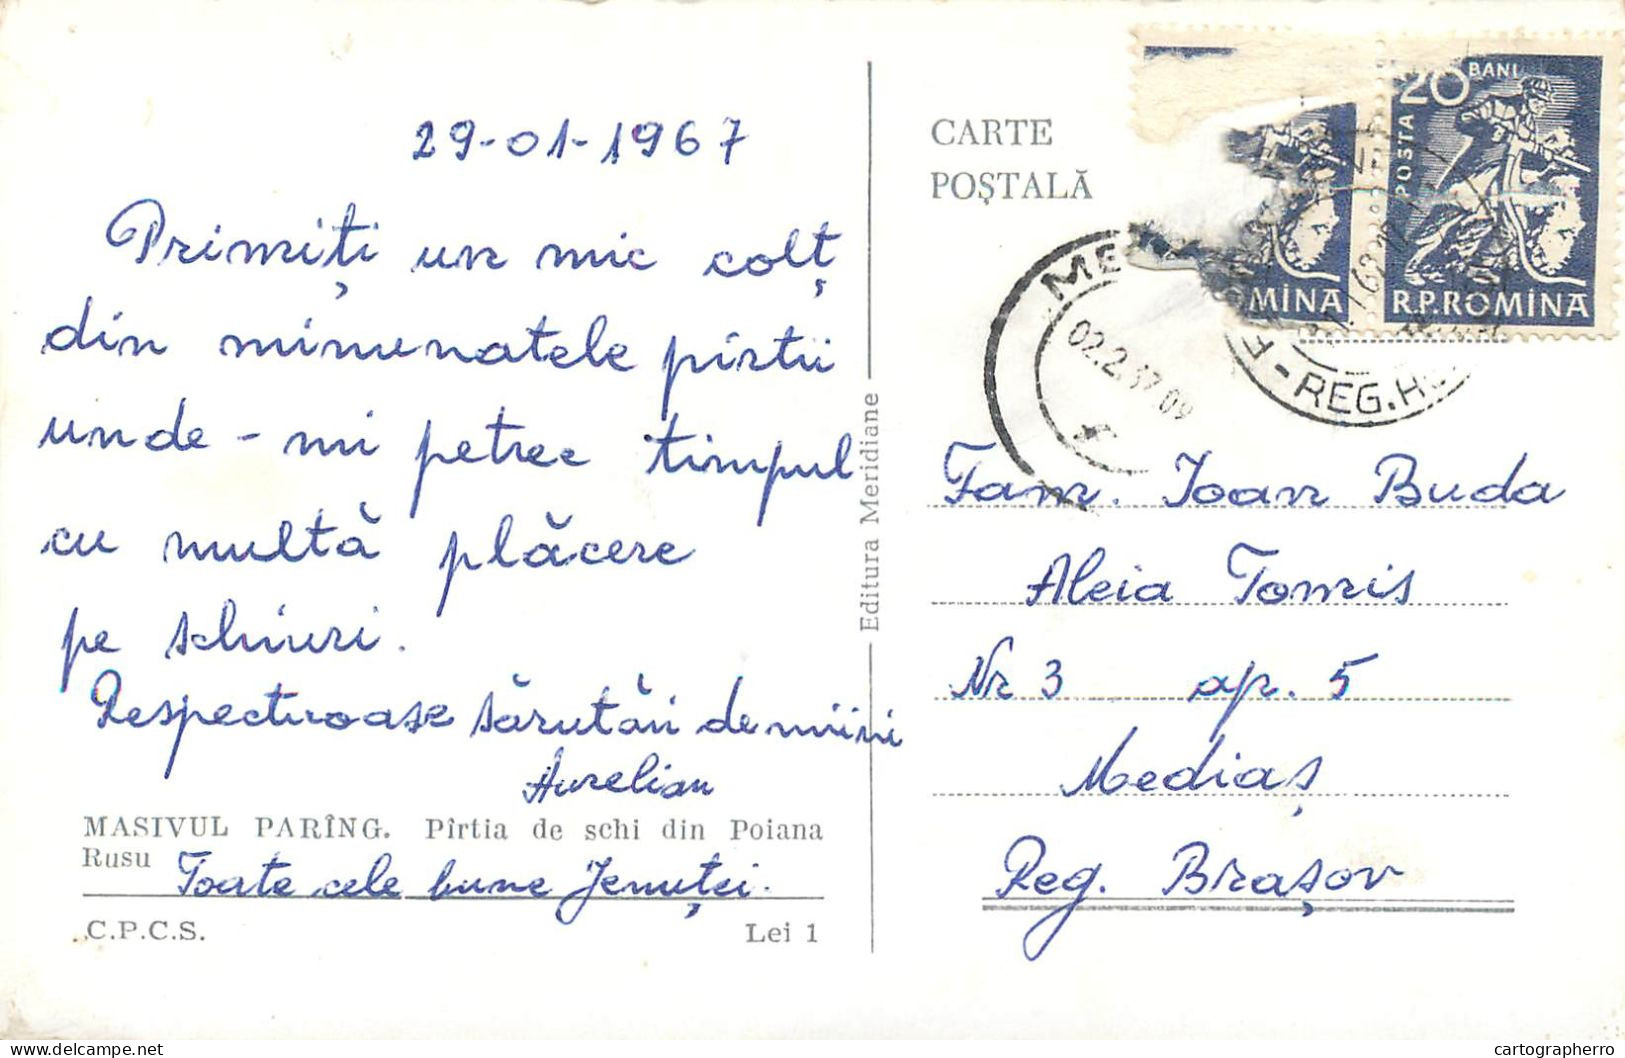 29-01-1967
Primiți un mic colț
din minunatele pîrtii
unde-mi petrec timpul
cu multă plăcere
pe schiuri.
Respectuoase sărutări de mîini
Aurelian
MASIVUL PARÎNG. Pîrtia de schi din Poiana
Rusu
Toate cele bune Jenuței.
C.P.C.S.
Lei 1
Editura Meridiane
CARTE
POȘTALĂ
20 BANI
POSTA
R.P.ROMINA
MINA
ME
02.2.67 09
REG.H
Fam. Ioan Buda
Aleia Tomis
Nr 3 ap. 5
Mediaș
Reg. Brașov
cartographerro
the-postcard.com